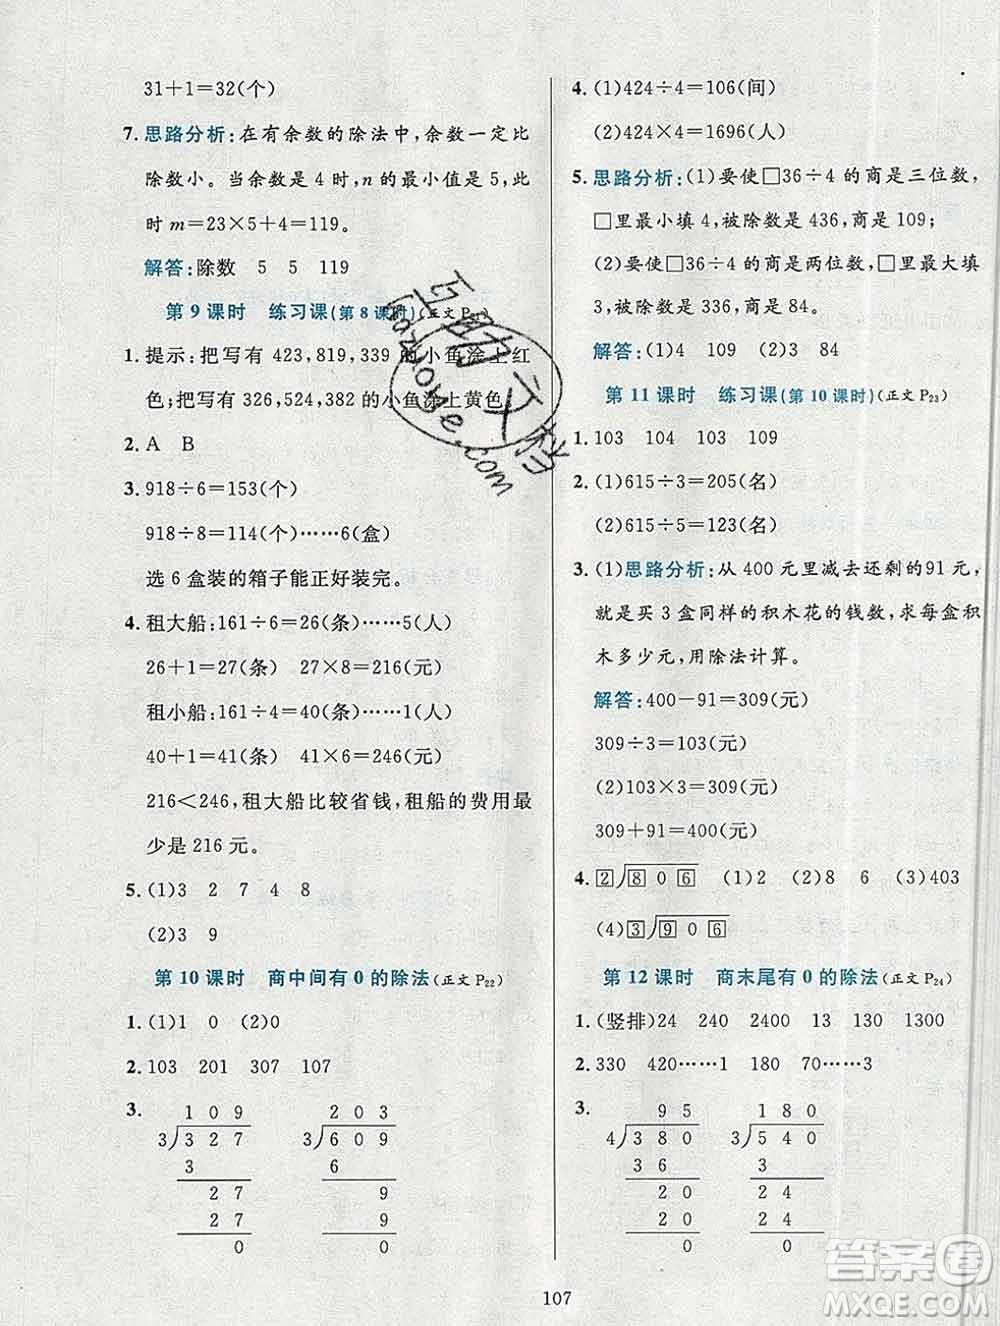 31+1=32(个)
7. 思路分析:在有余数的除法中,余数一定比
除数小。当余数是 4 时,n 的最小值是 5,此
时 m=23×5+4=119。
解答:除数 5 5 119
第 9 课时 练习课(第 8 课时)(正文 P
1. 提示:把写有 423,819,339 的小鱼涂上红
色;把写有 326,524,382 的小鱼涂上黄色。
2. A B
3. 918÷6=153(个)
918÷8=114(个)……6(盒)
选 6 盒装的箱子能正好装完。
4. 租大船:161÷6=26(条)……5(人)
26+1=27(条) 27×8=216(元)
租小船:161÷4=40(条)……1(人)
40+1=41(条) 41×6=246(元)
216<246,租大船比较省钱,租船的费用最
少是 216 元。
5. (1)3 2 7 4 8
(2)3 9
第 10 课时 商中间有 0 的除法(正文 P22)
1. (1)1 0 (2)0
2. 103 201 307 107
3. 109 203
3)327 3)609
3 6
27 9
27 9
0 0
4. (1)424÷4=106(间)
(2)424×4=1696(人)
5. 思路分析:(1)要使□36÷4 的商是三位数,
□里最小填 4,被除数是 436,商是 109;
(2)要使□36÷4 的商是两位数,□里最大填
3,被除数是 336,商是 84。
解答:(1)4 109 (2)3 84
第 11 课时 练习课(第 10 课时)(正文 P23)
1. 103 104 103 109
2. (1)615÷3=205(名)
(2)615÷5=123(名)
3. (1)思路分析:从 400 元里减去还剩的91 元,
就是买 3 盒同样的积木花的钱数,求每盒积
木多少元,用除法计算。
解答:400-91=309(元)
309÷3=103(元)
(2)103×3=309(元)
309+91=400(元)
4. 2)806 (1)2 (2)8 6 (3)403
(4)3)906
第 12 课时 商末尾有 0 的除法(正文 P24)
1. (竖排)24 240 2400 13 130 1300
2. 330 420……1 180 70……3
3. 95 180
4)380 3)540
36 3
20 24
20 24
0 0
107
互助文档
Hazuowe.com
答案圈
MXQE.COM